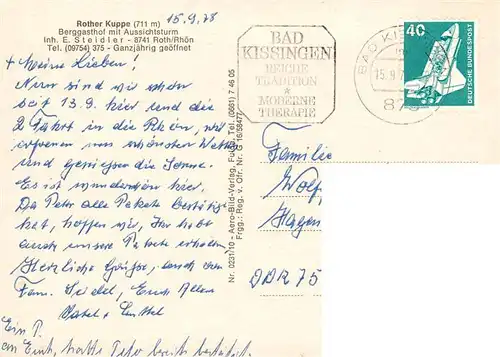 Rother Kuppe (711 m)
Berggasthof mit Aussichtsturm
Inh. E. Steidler - 8741 Roth/Rhön
Tel. (09754) 375 - Ganzjährig geöffnet
15.9.78
Meine Lieben!
Nun sind wir schon
seit 13.9. hier und die
2. Fahrt in die Rhön, wir
erfreuen uns schönsten Wetters
und genießen die Sonne.
Es ist wunderschön hier.
Da Peter alle Pakete bestätigt
hat, hoffen wir, Ihr habt
auch unsere Pakete erhalten.
Herzliche Grüße, auch von
Fam. Seidel, Euch Allen
Ein P.
an Euch, hatte Peter bereits bestätigt
Nr. 0231/10 - Aero-Bild-Verlag, Fulda, Tel. (0661) 7 46 05
Frgg.: Reg. v. Ofr. Nr. G 16/58477
BAD
KISSINGEN
REICHE
TRADITION
*
MODERNE
THERAPIE
BAD KIS
15.9.7
87
40
DEUTSCHE BUNDESPOST
Familie
Wolf
Hagen
DDR 75